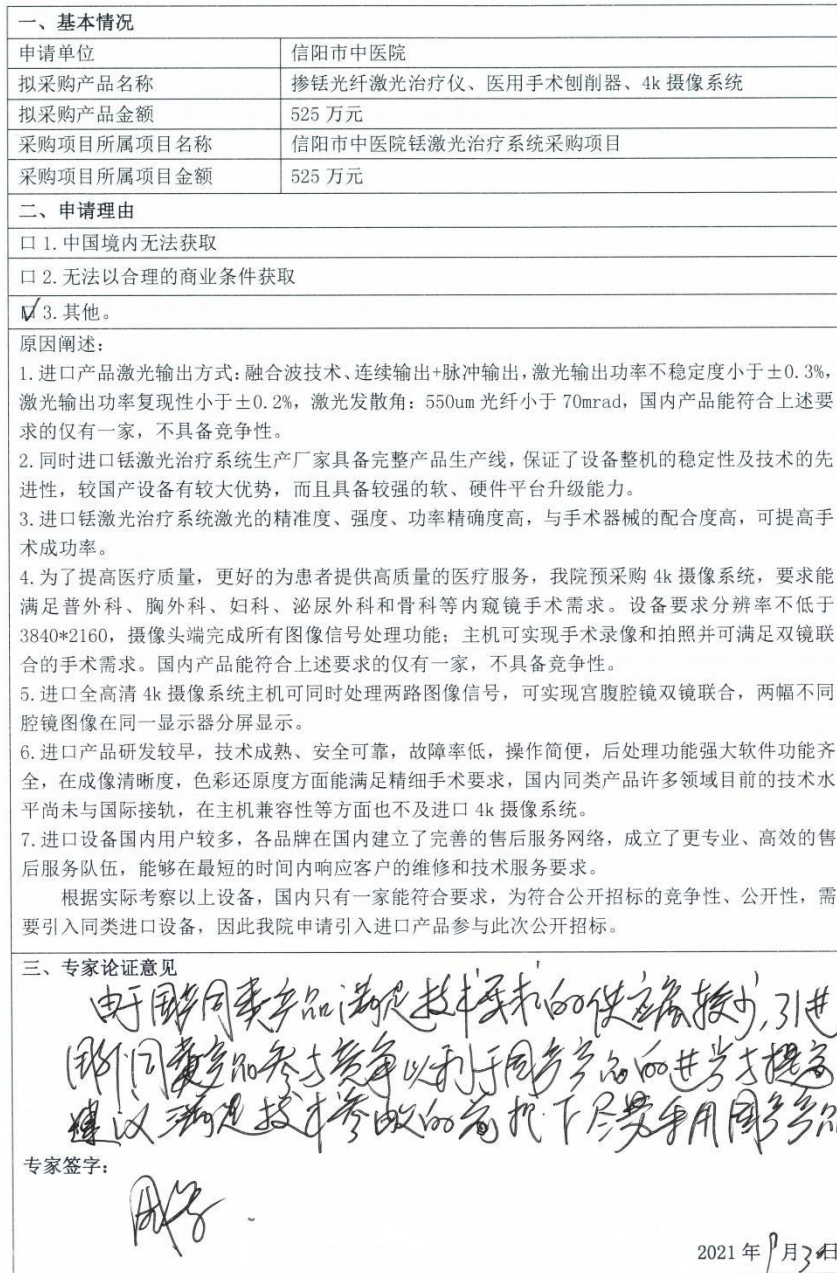 一、基本情况
申请单位 信阳市中医院
拟采购产品名称 掺铥光纤激光治疗仪、医用手术刨削器、4k 摄像系统
拟采购产品金额 525 万元
采购项目所属项目名称 信阳市中医院铥激光治疗系统采购项目
采购项目所属项目金额 525 万元
二、申请理由
口 1.中国境内无法获取
口 2.无法以合理的商业条件获取
☑ 3.其他。
原因阐述:
1.进口产品激光输出方式:融合波技术、连续输出+脉冲输出,激光输出功率不稳定度小于±0.3%,
激光输出功率复现性小于±0.2%,激光发散角:550um 光纤小于 70mrad,国内产品能符合上述要
求的仅有一家,不具备竞争性。
2.同时进口铥激光治疗系统生产厂家具备完整产品生产线,保证了设备整机的稳定性及技术的先
进性,较国产设备有较大优势,而且具备较强的软、硬件平台升级能力。
3.进口铥激光治疗系统激光的精准度、强度、功率精确度高,与手术器械的配合度高,可提高手
术成功率。
4.为了提高医疗质量,更好的为患者提供高质量的医疗服务,我院预采购 4k 摄像系统,要求能
满足普外科、胸外科、妇科、泌尿外科和骨科等内窥镜手术需求。设备要求分辨率不低于
3840*2160,摄像头端完成所有图像信号处理功能;主机可实现手术录像和拍照并可满足双镜联
合的手术需求。国内产品能符合上述要求的仅有一家,不具备竞争性。
5.进口全高清 4k 摄像系统主机可同时处理两路图像信号,可实现宫腹腔镜双镜联合,两幅不同
腔镜图像在同一显示器分屏显示。
6.进口产品研发较早,技术成熟、安全可靠,故障率低,操作简便,后处理功能强大软件功能齐
全,在成像清晰度,色彩还原度方面能满足精细手术要求,国内同类产品许多领域目前的技术水
平尚未与国际接轨,在主机兼容性等方面也不及进口 4k 摄像系统。
7.进口设备国内用户较多,各品牌在国内建立了完善的售后服务网络,成立了更专业、高效的售
后服务队伍,能够在最短的时间内响应客户的维修和技术服务要求。
根据实际考察以上设备,国内只有一家能符合要求,为符合公开招标的竞争性、公开性,需
要引入同类进口设备,因此我院申请引入进口产品参与此次公开招标。
三、专家论证意见
由于国产同类产品满足技术要求的供应商较少,引进
同类产品参与竞争以利于国产产品的进步与提高
建议满足技术参数的前提下尽量采用国产产品
专家签字:
2021 年 月 日